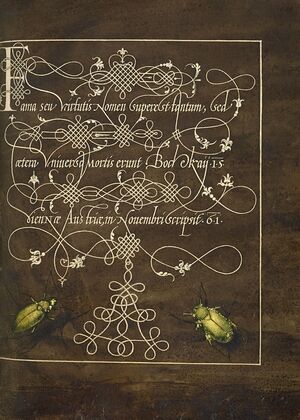 Fama seu Virtutis Nomen superest tantum, Sed
cætera Vniversa Mortis erunt. Bočskaij. 15
Viennæ Austriæ, in Nouembri scripsit. 61.